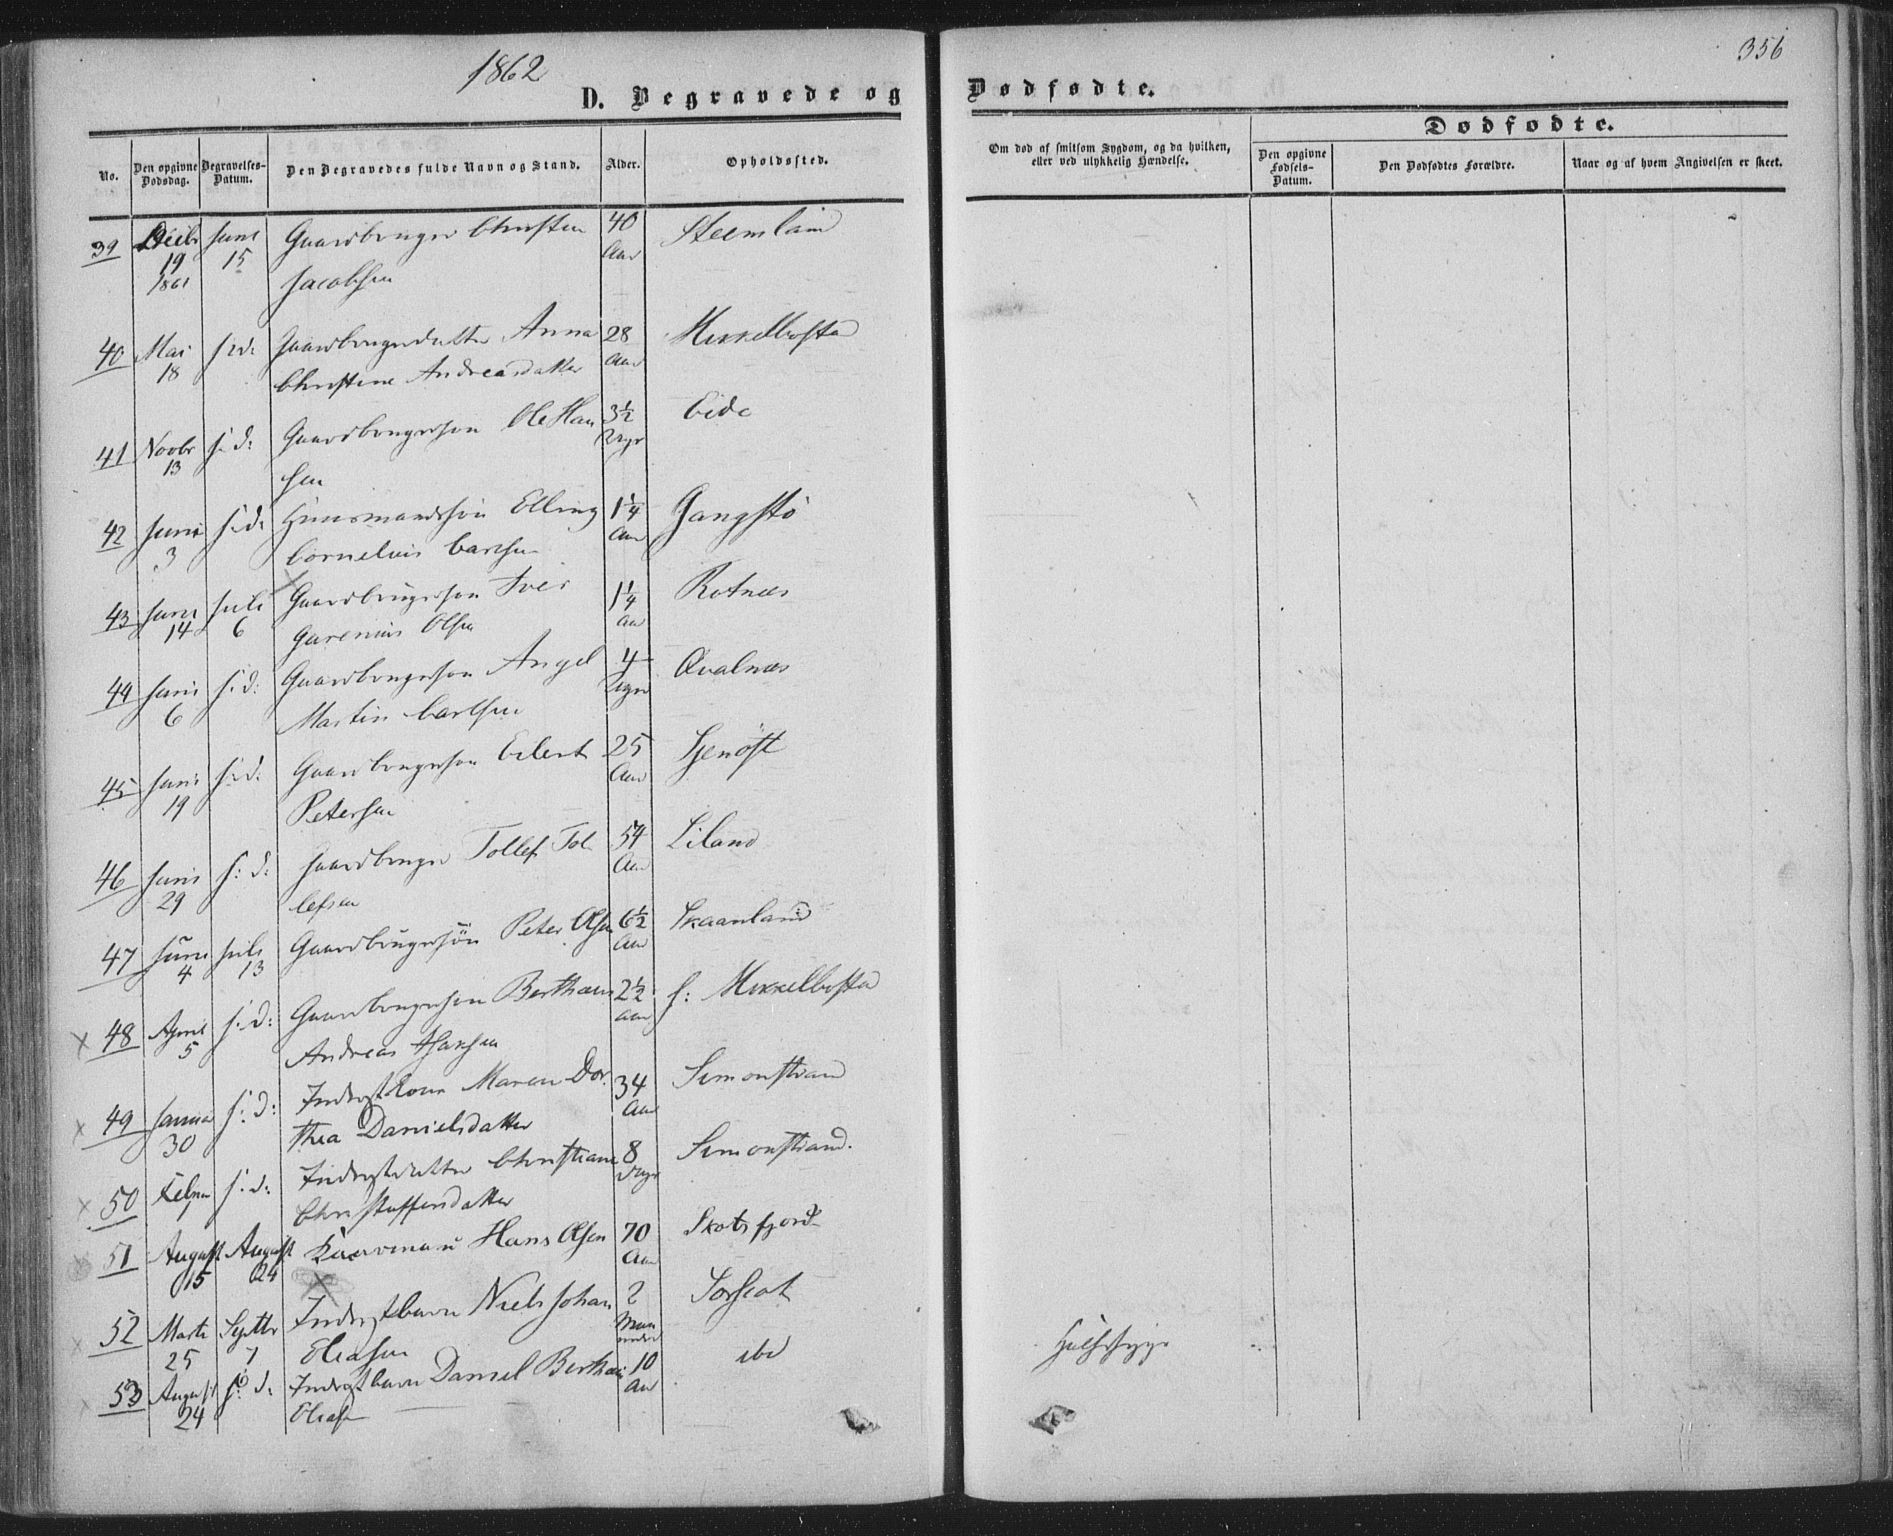 1862
356
D. Begravede og Dødfødte.
No.
Den opgivne Dødsdag.
Begravelses-Datum.
Den Begravedes fulde Navn og Stand.
Alder.
Opholdssted.
Om død af smitsom Sygdom, og da hvilken, eller ved ulykkelig Hændelse.
Dødfødte.
Den opgivne Fødsels-Datum.
Den Dødfødtes Forældre.
Naar og af hvem Angivelsen er skeet.
39 Decbr 19 1861 Juni 15 Gaardbruger Christen 40 Aar Steenland
Jacobsen
40 Mai 18 s: d: Gaardbrugerdatter Anna 28 Aar Mikkelbosta
Christine Andreasdatter
41 Novbr 13 s: d: Gaardbrugersøn Ole Han 3½ Eide
sen
42 Juni 3 s: d: Huusmandssøn Elling 1¼ Aar Gangstø
Cornelius Carlsen
43 Juni 14 Juli 6 Gaardbrugersøn Iver 1¼ Aar Rotnæs
Garenius Olsen
44 Juni 6 s: d: Gaardbrugersøn Angel 4 Uger Qvalnæs
Martin Carlsen
45 Juni 19 s: d: Gaardbrugersøn Eilert 25 Aar
Petersen
46 Juni 29 s: d: Gaardbruger Tollef Tol 54 Aar Liland
lefsen
47 Juni 4 Juli 13 Gaardbrugersøn Peter Olsen 6½ Aar Skaanland
48 April 5 s: d: Gaardbrugersøn Berthæus 2½ Aar s: Mikkelbosta
Andreas Hansen
49 Januar 30 s: d: Inderstkone Maren Dor 34 Aar Simonstrand
thea Danielsdatter
50 Febru s: d: Inderstdatter Christiane 8 Dage Simonstrand.
Christoffersdatter
51 August 15 August 24 Hans Olsen 70 Aar Skotsfjord
52 Marts 25 Septbr 7 Inderstbarn Niels Johan 2 Maaneder
Eliasen
53 August 24 s: d: Inderstbarn Daniel Berthæus 10 Aar ibd Halssyge
Eliasen